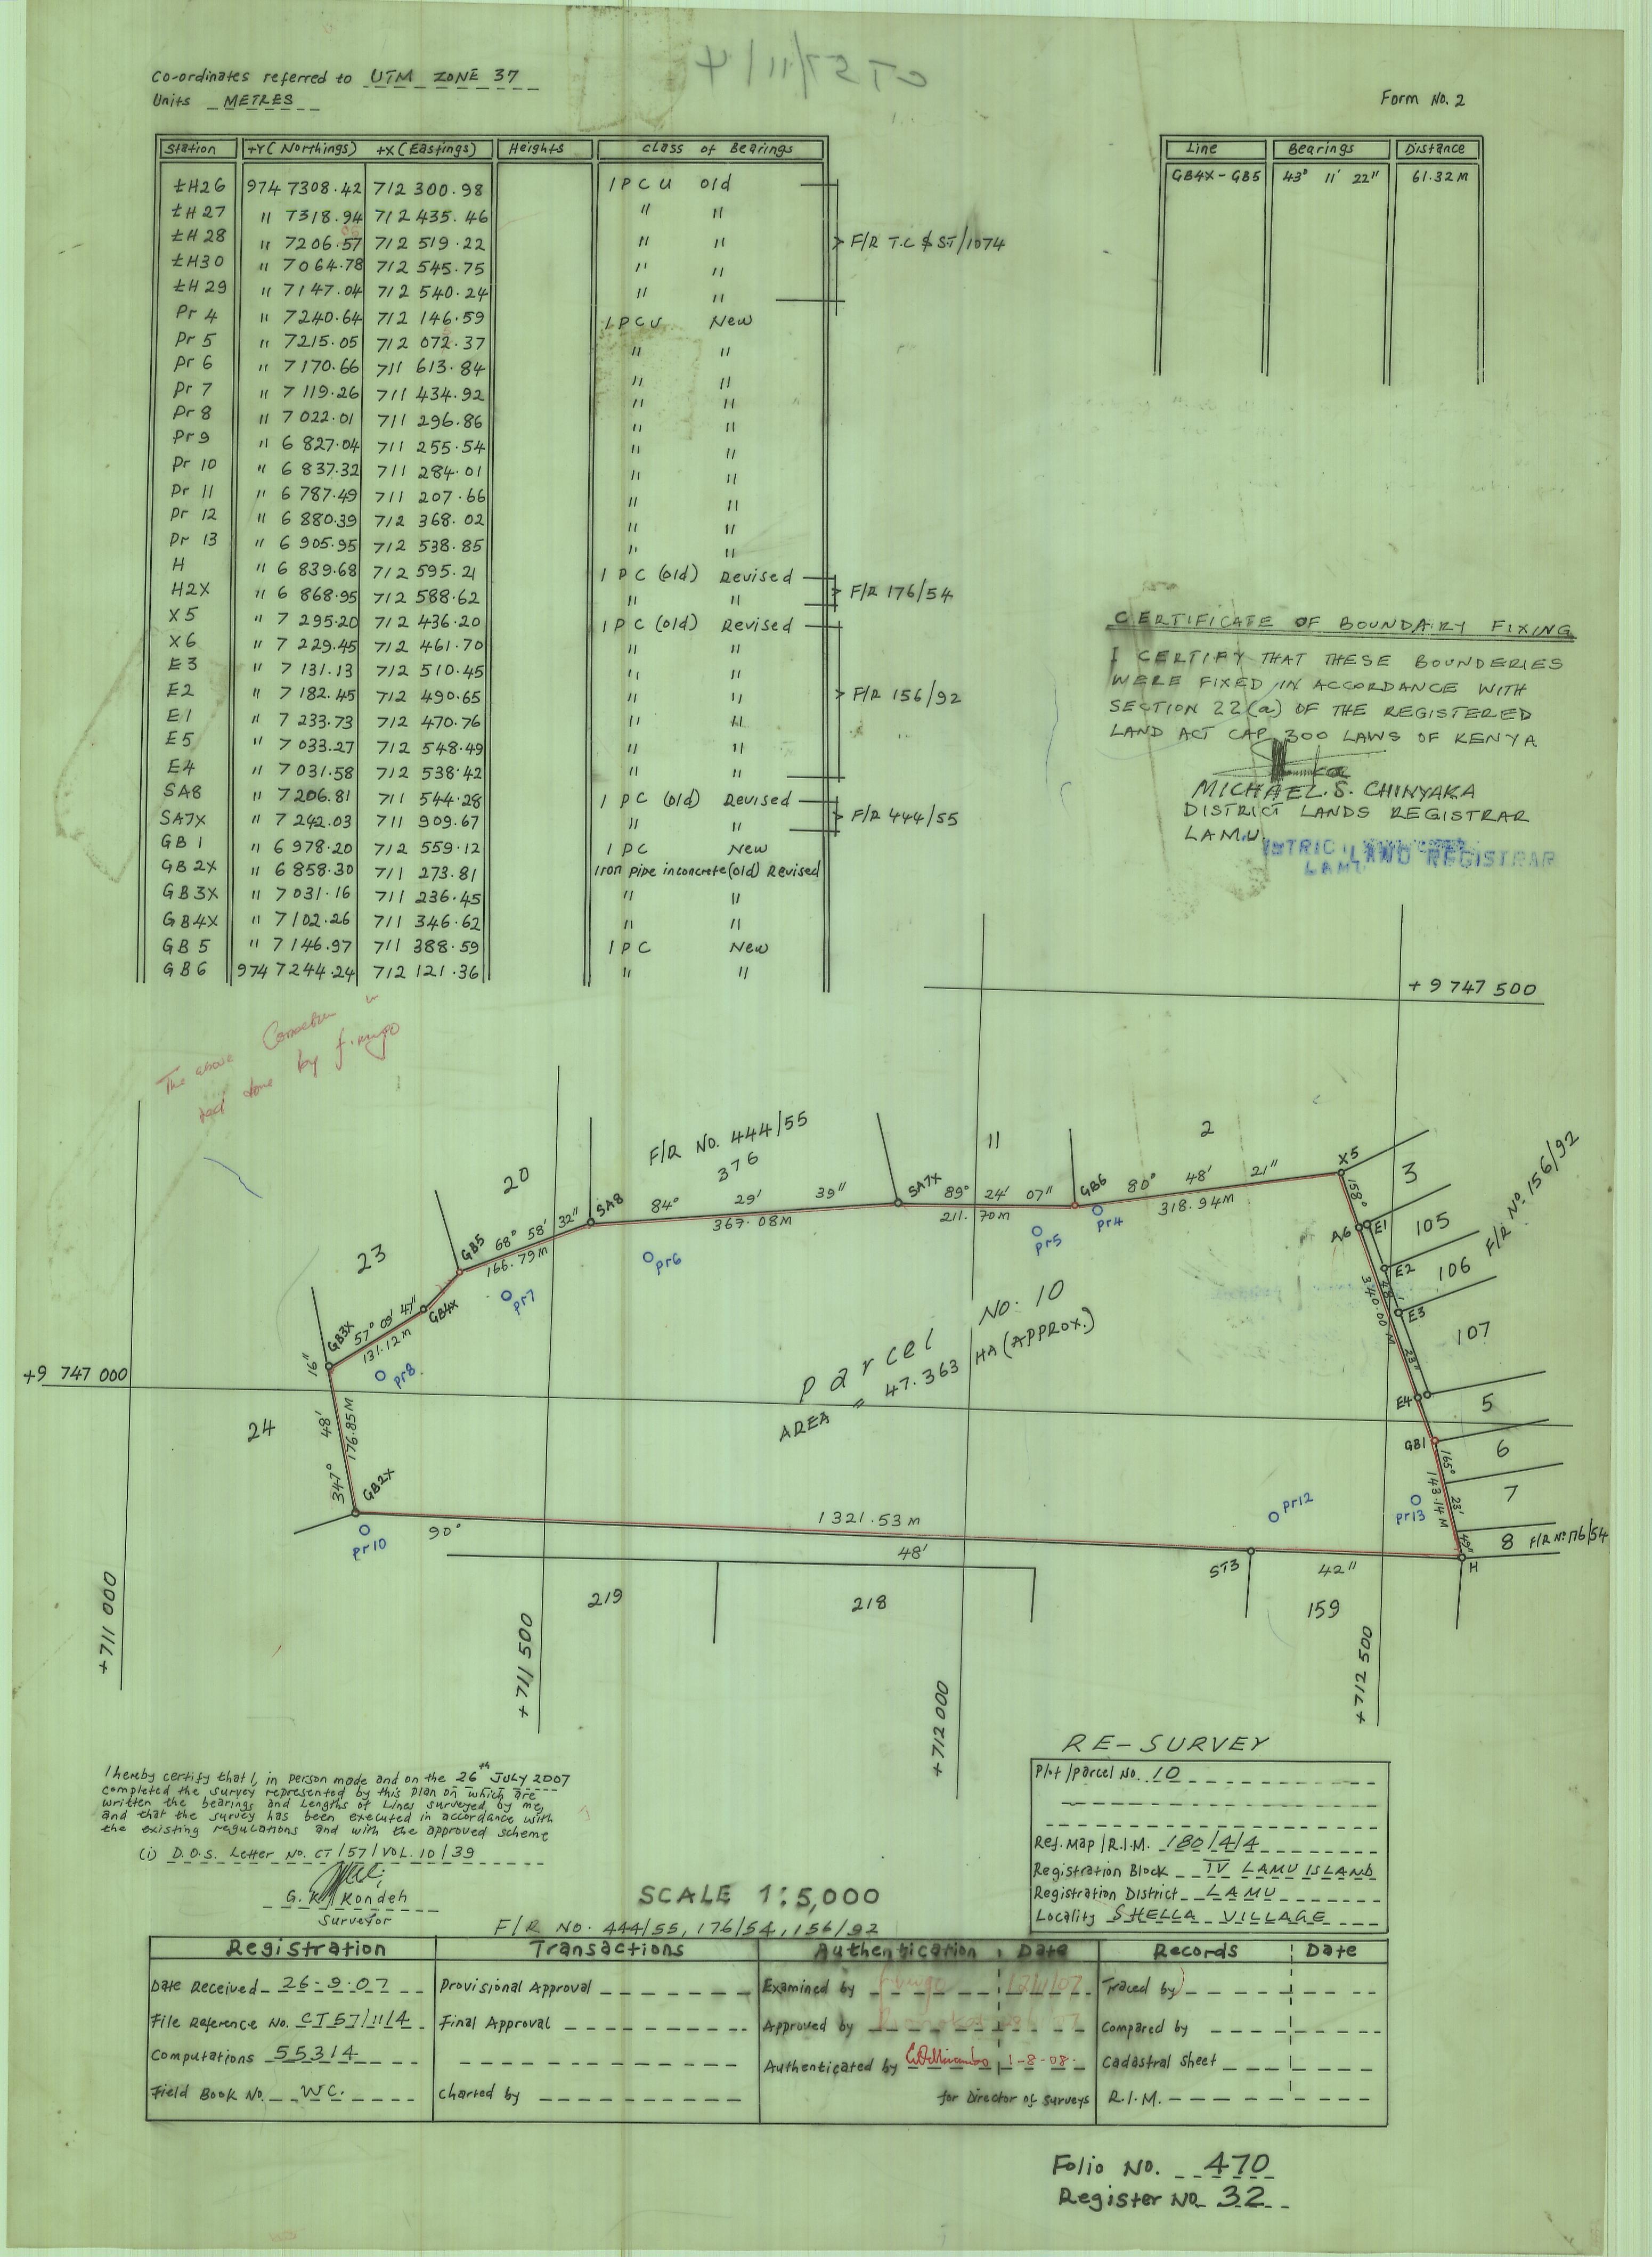 CT57/11/4
Co-ordinates referred to UTM ZONE 37
Units METRES
Form No. 2
Station +Y (Northings) +X (Eastings) Heights Class of Bearings
ŁH26 974 7308.42 712 300.98 IPCU Old
ŁH27 " 7318.94 712 435.46 " "
ŁH28 " 7206.57 712 519.22 " "
F/R T.C $ ST/1074
ŁH30 " 7064.78 712 545.75 " "
ŁH29 " 7147.04 712 540.24 " "
Pr 4 " 7240.64 712 146.59 IPCU New
Pr 5 " 7215.05 712 072.37 " "
Pr 6 " 7170.66 711 613.84 " "
Pr 7 " 7119.26 711 434.92 " "
Pr 8 " 7022.01 711 296.86 " "
Pr 9 " 6827.04 711 255.54 " "
Pr 10 " 6837.32 711 284.01 " "
Pr 11 " 6787.49 711 207.66 " "
Pr 12 " 6880.39 712 368.02 " "
Pr 13 " 6905.95 712 538.85 " "
H " 6839.68 712 595.21 IPC (old) Revised
H2X " 6868.95 712 588.62 " "
F/R 176/54
X5 " 7295.20 712 436.20 IPC (old) Revised
X6 " 7229.45 712 461.70 " "
E3 " 7131.13 712 510.45 " "
E2 " 7182.45 712 490.65 " "
F/R 156/92
E1 " 7233.73 712 470.76 " "
E5 " 7033.27 712 548.49 " "
E4 " 7031.58 712 538.42 " "
SA8 " 7206.81 711 544.28 IPC (old) Revised
SA7X " 7242.03 711 909.67 " "
F/R 444/55
GB 1 " 6978.20 712 559.12 IPC New
GB 2X " 6858.30 711 273.81 Iron pipe in concrete (old) Revised
GB 3X " 7031.16 711 236.45 " "
GB4X " 7102.26 711 346.62 " "
GB 5 " 7146.97 711 388.59 IPC New
GB 6 974 7244.24 712 121.36 " "
Line Bearings Distance
GB4X-GB5 43° 11' 22" 61.32M
CERTIFICATE OF BOUNDAIRY FIXING
I CERTIFY THAT THESE BOUNDERIES
WERE FIXED IN ACCORDANCE WITH
SECTION 22(a) OF THE REGISTERED
LAND ACT CAP 300 LAWS OF KENYA
MICHAEL.S. CHINYAKA
DISTRICT LANDS REGISTRAR
LAMU.
LAND REGISTRAR
The above
done by f.mugo
+ 9 747 500
F/R No. 444/55
376
20
23
24
11
2
3
105
106
107
5
6
7
8
F/R No. 156/92
F/R No. 176/54
SA8 84° 29' 39" 367.08M
SA7X 89° 24' 07" 211.70M
GB6 80° 48' 21" 318.94M
X5
158° 28' 23" 340.00 M
A6
E1
E2
E3
E4
GB1
165° 23' 49" 143.14 M
H
GB5 68° 58' 32" 166.79M
GB4X
GB3X 57° 09' 47" 131.12M
347° 48' 16" 176.85M
GB2X
90° 48' 42" 1321.53M
ST3
pr4
pr5
pr6
pr7
pr8
pr10
pr12
pr13
Parcel No. 10
AREA = 47.363 HA (APPROX.)
+9 747 000
219
218
159
+711 000
+711 500
+712 000
+712 500
I hereby certify that I, in person made and on the 26th JULY 2007
completed the survey represented by this plan on which are
written the bearings and Lengths of Lines surveyed by me,
and that the survey has been executed in accordance with
the existing regulations and with the approved scheme
(i) D.O.S. Letter No. CT/57/VOL.10/39
G. K. Kondeh
Surveyor
SCALE 1:5,000
F/R NO. 444/55, 176/54, 156/92
RE-SURVEY
Plot/parcel No. 10
Ref. Map/R.I.M. 180/4/4
Registration Block IV LAMU ISLAND
Registration District LAMU
Locality SHELLA VILLAGE
Registration Transactions Authentication Date Records Date
Date Received 26-9-07 Provisional Approval Examined by Traced by
File Reference No. CT57/11/4 Final Approval Approved by Compared by
Computations 55314 Authenticated by 1-8-08. Cadastral Sheet
Field Book No. WC. Charted by for Director of Surveys R.I.M.
Folio No. 470
Register No 32